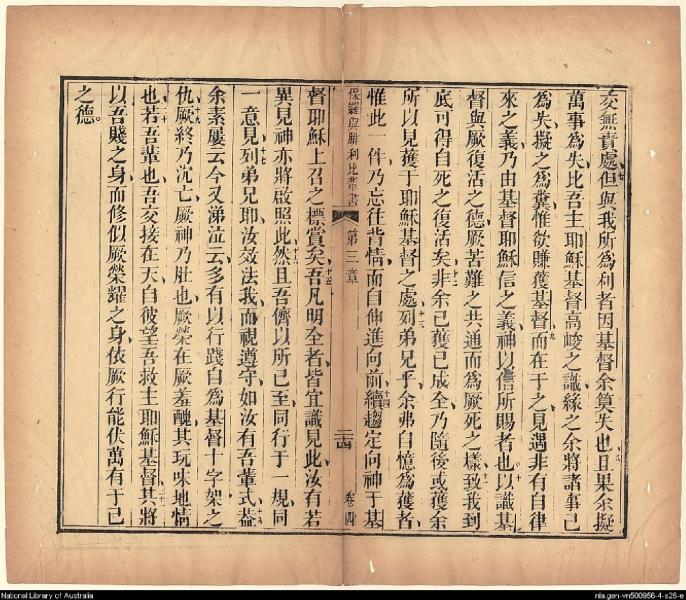 交無責處但與我所為利者因基督余筭失也且果余擬
萬事為失比吾主耶穌基督高峻之識緣之余將諸事已
為失擬之為糞惟欲賺獲基督而在于之見遇非有自律
來之義乃由基督耶穌信之義神以信所賜者也以識基
督與厥復活之德厥苦難之共通而為厥死之樣致我到
底可得自死之復活矣非余已獲已成全乃隨後或獲余
所以見獲于耶穌基督之處列弟兄乎余弗自憶為獲者
惟此一件乃忘往背情而自伸進向前續趨定向神于基
保羅與腓利比輩書 第三章 二十四 卷四
督耶穌上召之標賞矣吾凡明全者皆宜識見此汝有若
異見神亦將啟照此然且吾儕以所已至同行于一規同
一意見列弟兄耶汝效法我而視遵守如汝有吾輩式蓋
余素屢云今又涕泣云多有以行踐自為基督十字架之
仇厥終乃沉亡厥神乃肚也厥榮在厥羞醜其玩味地情
也若吾輩也吾交接在天自彼望吾救主耶穌基督其將
以吾賤之身而修似厥榮耀之身依厥行能伏萬有于己
之德。
National Library of Australia
nla.gen-vn500956-4-s26-e